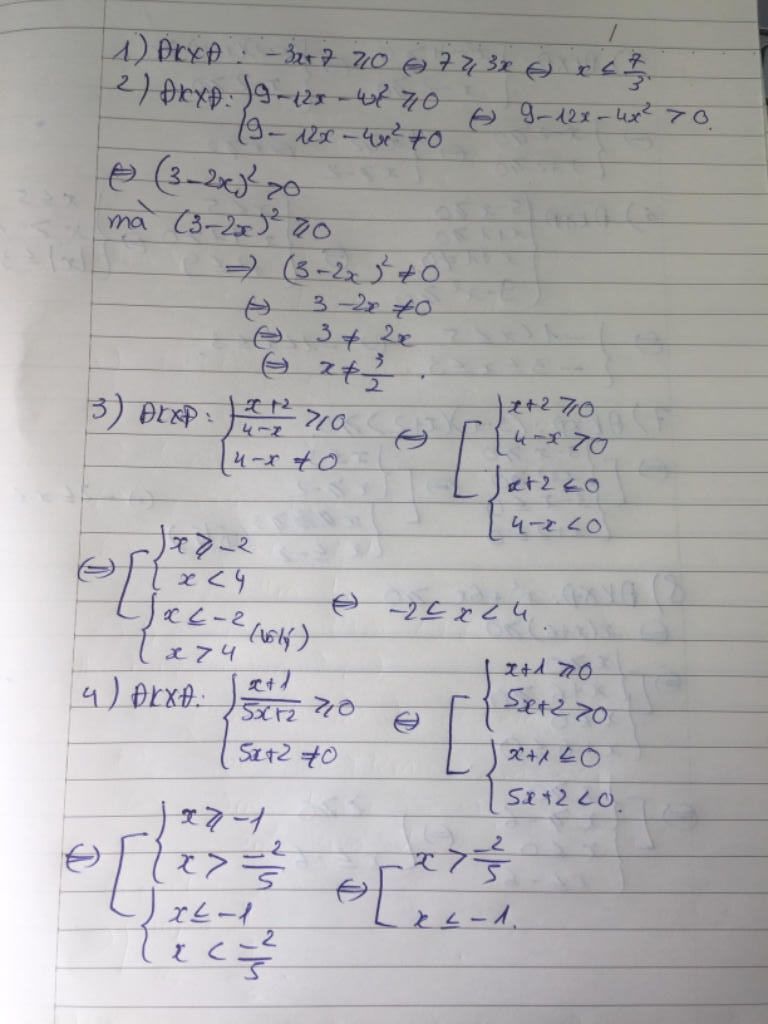 1) ĐKXĐ: -3x+7 ⩾ 0 ⇔ 7 ⩾ 3x ⇔ x ≤ 7/3.
2) ĐKXĐ: { 9-12x-4x² ⩾ 0
9-12x-4x² ≠ 0 ⇔ 9-12x-4x² > 0.
⇔ (3-2x)² > 0
mà (3-2x)² ⩾ 0
⇒ (3-2x)² ≠ 0
⇔ 3-2x ≠ 0
⇔ 3 ≠ 2x
⇔ x ≠ 3/2.
3) ĐKXĐ: { (x+2)/(4-x) ⩾ 0
4-x ≠ 0 ⇔ [ { x+2 ⩾ 0
4-x > 0
{ x+2 ≤ 0
4-x < 0
⇔ [ { x ⩾ -2
x < 4
{ x ≤ -2
x > 4 ⇔ -2 ≤ x < 4.
4) ĐKXĐ: { (x+1)/(5x+2) ⩾ 0
5x+2 ≠ 0 ⇔ [ { x+1 ⩾ 0
5x+2 > 0
{ x+1 ≤ 0
5x+2 < 0.
⇔ [ { x ⩾ -1
x > -2/5
{ x ≤ -1
x < -2/5
⇔ [ x > -2/5
x ≤ -1.